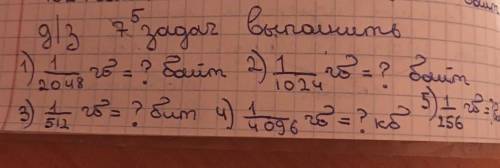 д/з 7⁵ задач выполнить
1) 1/2048 гб = ? байт 2) 1/1024 гб = ? байт
3) 1/512 гб = ? бит 4) 1/4096 гб = ? кб 5) 1/256 гб = ?